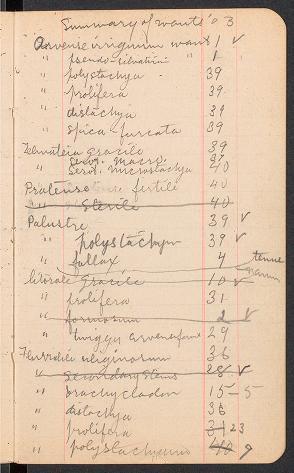 Summary of wants '03
Arvense irriguum want 1 ✓
" pseudo-silvaticum " 1
" polystachya - 39
" prolifera 39
" distachya 39
" spica-furcata 39
Telmateia gracile 39
" Serot. macro. 39
" Serot. microstachya 40
Pratense fertile 40
" " Sterile 40
Palustre 39 ✓
" polystachyum 39 ✓
" fallax 4 tenue
litorale gracile 10 ✓
" prolifera 31
" formosum 2 ✓
" 29
Fluviatile uliginosum 36
" Secondary stems 28 ✓
" brachycladon 15-5
" distachya 36
" prolifera 31 23
" polystachyum 40 9